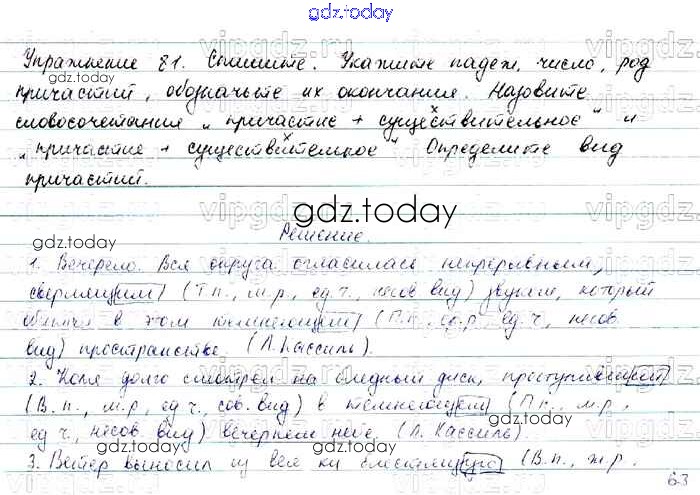 gdz.today
Упражнение 81. Спишите. Укажите падеж, число, род
gdz.today
причастий, обозначьте их окончания. Назовите
словосочетания „причастие + существительное" и
„причастие + существительное" Определите вид
причастий.
gdz.today
gdz.today
Решение.
1. Вечерело. Вся округа огласилась непрерывным,
сверлящим (Т.п., м.р., ед.ч., несов вид) звуком, который
в этом темнеющем (П.п., ср.р., ед.ч., несов
вид) пространстве. (Л. Кассиль).
2. Коля долго смотрел на бледный диск, проступивший
(В.п., м.р., ед.ч., сов. вид) в темнеющем (П.п., м.р.,
ед.ч., несов. вид) вечернем небе. (Л. Кассиль).
gdz.today
3. Ветер выносил из блестящую (В.п., ж.р.
63